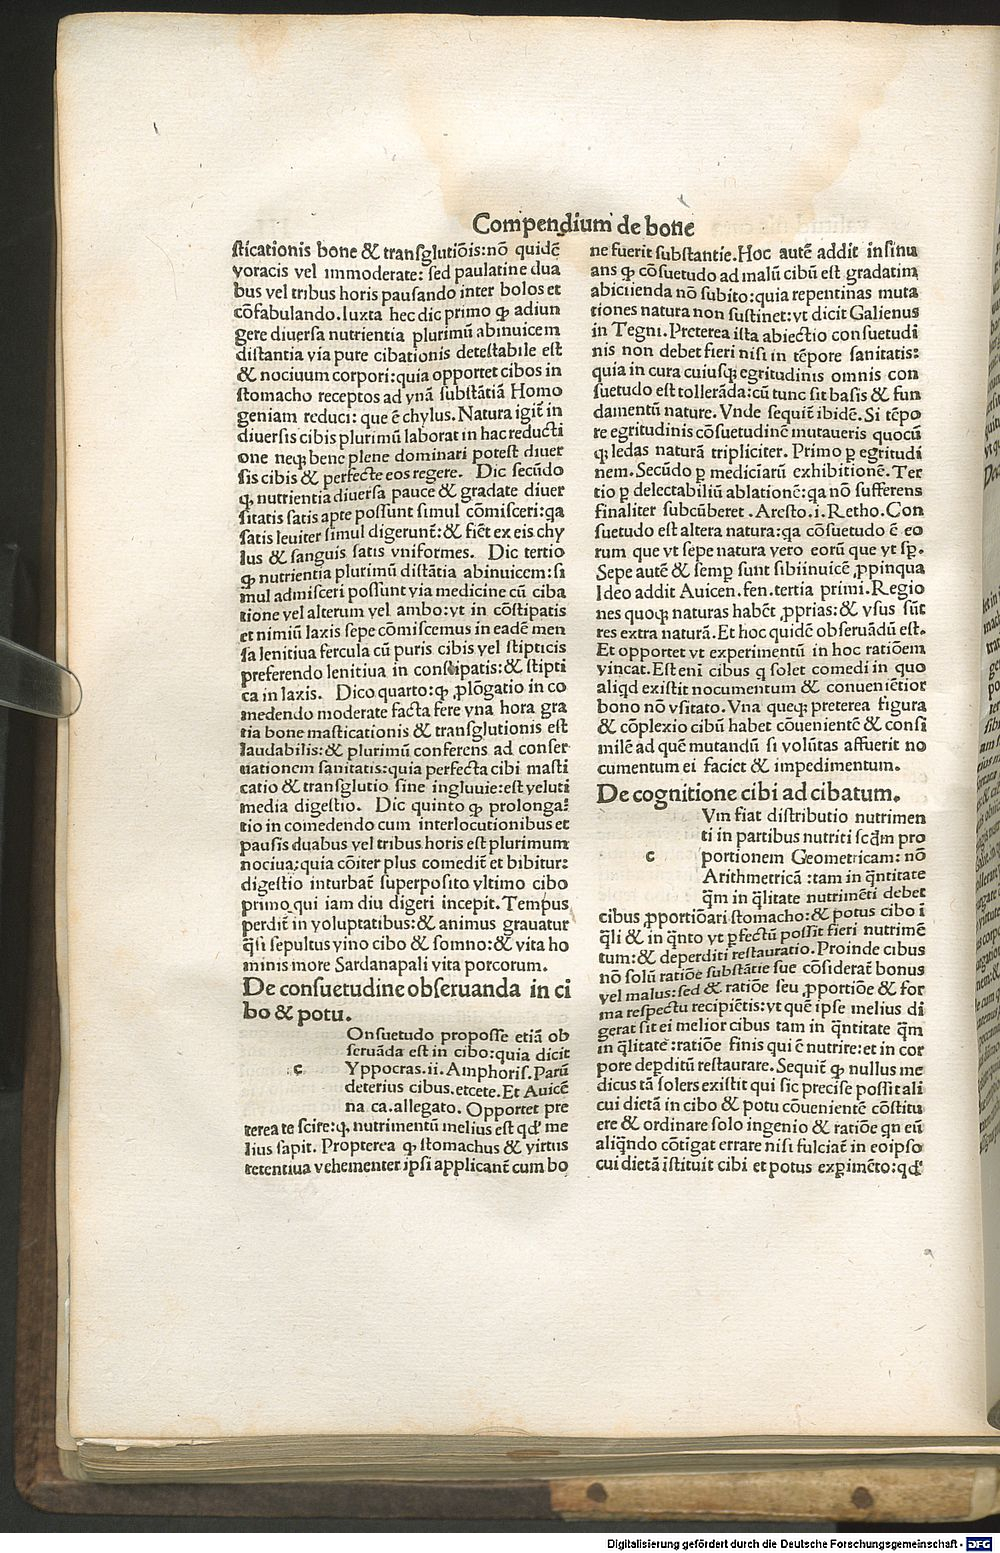 Compendium de bone
sticationis bone & transglutiōis: nō quidē
voracis vel immoderate: sed paulatine dua
bus vel tribus horis pausando inter bolos et
cōfabulando. Iuxta hec dic primo ꝙ adiun
gere diuersa nutrientia plurimū abinuicem
distantia via pure cibationis detestabile est
& nociuum corpori: quia opportet cibos in
stomacho receptos ad ynā substātiā Homo
geniam reduci: que ē chylus. Natura igit̄ in
diuersis cibis plurimū laborat in hac reducti
one neqꝫ bene plene dominari potest diuer
sis cibis & perfecte eos regere. Dic secūdo
ꝙ nutrientia diuersa pauce & gradate diuer
sitatis satis apte possunt simul cōmisceri: qa
satis leuiter simul digerunt̄: & fiēt ex eis chy
lus & sanguis satis vniformes. Dic tertio
ꝙ nutrientia plurimū distātia abinuicem: si
mul admisceri possunt via medicine cū ciba
tione vel alterum vel ambo: vt in cōstipatis
et nimiū laxis sepe cōmiscemus in eadē men
sa lenitiua fercula cū puris cibis vel stipticis
preferendo lenitiua in constipatis: & stipti
ca in laxis. Dico quarto: ꝙ ꝓlōgatio in co
medendo moderate facta fere vna hora gra
tia bone masticationis & transglutionis est
laudabilis: & plurimū conferens ad conser
uationem sanitatis: quia perfecta cibi masti
catio & transglutio sine ingluuie: est veluti
media digestio. Dic quinto ꝙ prolonga⸗
tio in comedendo cum interlocutionibus et
pausis duabus vel tribus horis est plurimum
nociua: quia cōiter plus comedit̄ et bibitur:
digestio inturbat̄ superposito vltimo cibo
primo qui iam diu digeri incepit. Tempus
perdit̄ in voluptatibus: & animus grauatur
q̄si sepultus vino cibo & somno: & vita ho
minis more Sardanapali vita porcorum.
De consuetudine obseruanda in ci
bo & potu.
c
Onsuetudo proposse etiā ob
seruāda est in cibo: quia dicit
Yppocras. ii. Amphoris. Parū
deterius cibus. etcete. Et Auicē
na ca. allegato. Opportet pre
terea te scire: ꝙ nutrimentū melius est qd' me
lius sapit. Propterea ꝙ stomachus & virtus
retentiua vehementer ipsi applicant̄ cum bo
ne fuerit substantie. Hoc autē addit insinu
ans ꝙ cōsuetudo ad malū cibū est gradatim
abiciienda nō subito: quia repentinas muta
tiones natura non sustinet: vt dicit Galienus
in Tegni. Preterea ista abiectio consuetudi
nis non debet fieri nisi in tēpore sanitatis:
quia in cura cuiusqꝫ egritudinis omnis con
suetudo est tollerāda: cū tunc sit basis & fun
damentū nature. Vnde sequit̄ ibidē. Si tēpo
re egritudinis cōsuetudinē mutaueris quocū
qꝫ ledas naturā tripliciter. Primo ꝑ egritudi
nem. Secūdo ꝑ mediciarū exhibitionē. Ter
tio ꝑ delectabiliū ablationē: qa nō sufferens
finaliter subcūberet. Aresto. i. Retho. Con
suetudo est altera natura: qa cōsuetudo ē eo
rum que vt sepe natura vero eorū que vt sꝑ.
Sepe autē & semꝑ sunt sibiinuicē ꝓpinqua
Ideo addit Auicen. fen. tertia primi. Regio
nes quoqꝫ naturas habēt ꝓprias: & vsus sūt
res extra naturā. Et hoc quidē obseruādū est.
Et opportet vt experimentū in hoc ratiōem
vincat. Est eni cibus q solet comedi in quo
aliqd existit nocumentum & conueniētior
bono nō vsitato. Vna queqꝫ preterea figura
& cōplexio cibū habet cōuenientē & consi
milē ad quē mutandū si volūtas affuerit no
cumentum ei faciet & impedimentum.
De cognitione cibi ad cibatum.
c
Vm fiat distributio nutrimen
ti in partibus nutriti scdm pro
portionem Geometricam: nō
Arithmetricā: tam in q̄ntitate
q̄m in q̄litate nutrimēti debet
cibus ꝓportiōari stomacho: & potus cibo ī
q̄li & in q̄nto vt ꝑfectū possit fieri nutrimē
tum: & deperditi restauratio. Proinde cibus
nō solū ratiōe substātie sue cōsiderat̄ bonus
vel malus: sed & ratiōe seu ꝓportiōe & for
ma respectu recipiētis: vt quē ipse melius di
gerat sit ei melior cibus tam in q̄ntitate q̄m
in q̄litate: ratiōe finis qui ē nutrire: et in cor
pore deꝑditū restaurare. Sequit̄ ꝙ nullus me
dicus tā solers existit qui sic precise possit ali
cui dietā in cibo & potu cōuenientē cōstitu
ere & ordinare solo ingenio & ratiōe qn eū
aliqn̄do cōtigat errare nisi fulciat̄ in eoipso
cui dietā istituit cibi et potus exꝑimēto: qd'
Digitalisierung gefördert durch die Deutsche Forschungsgemeinschaft - DFG